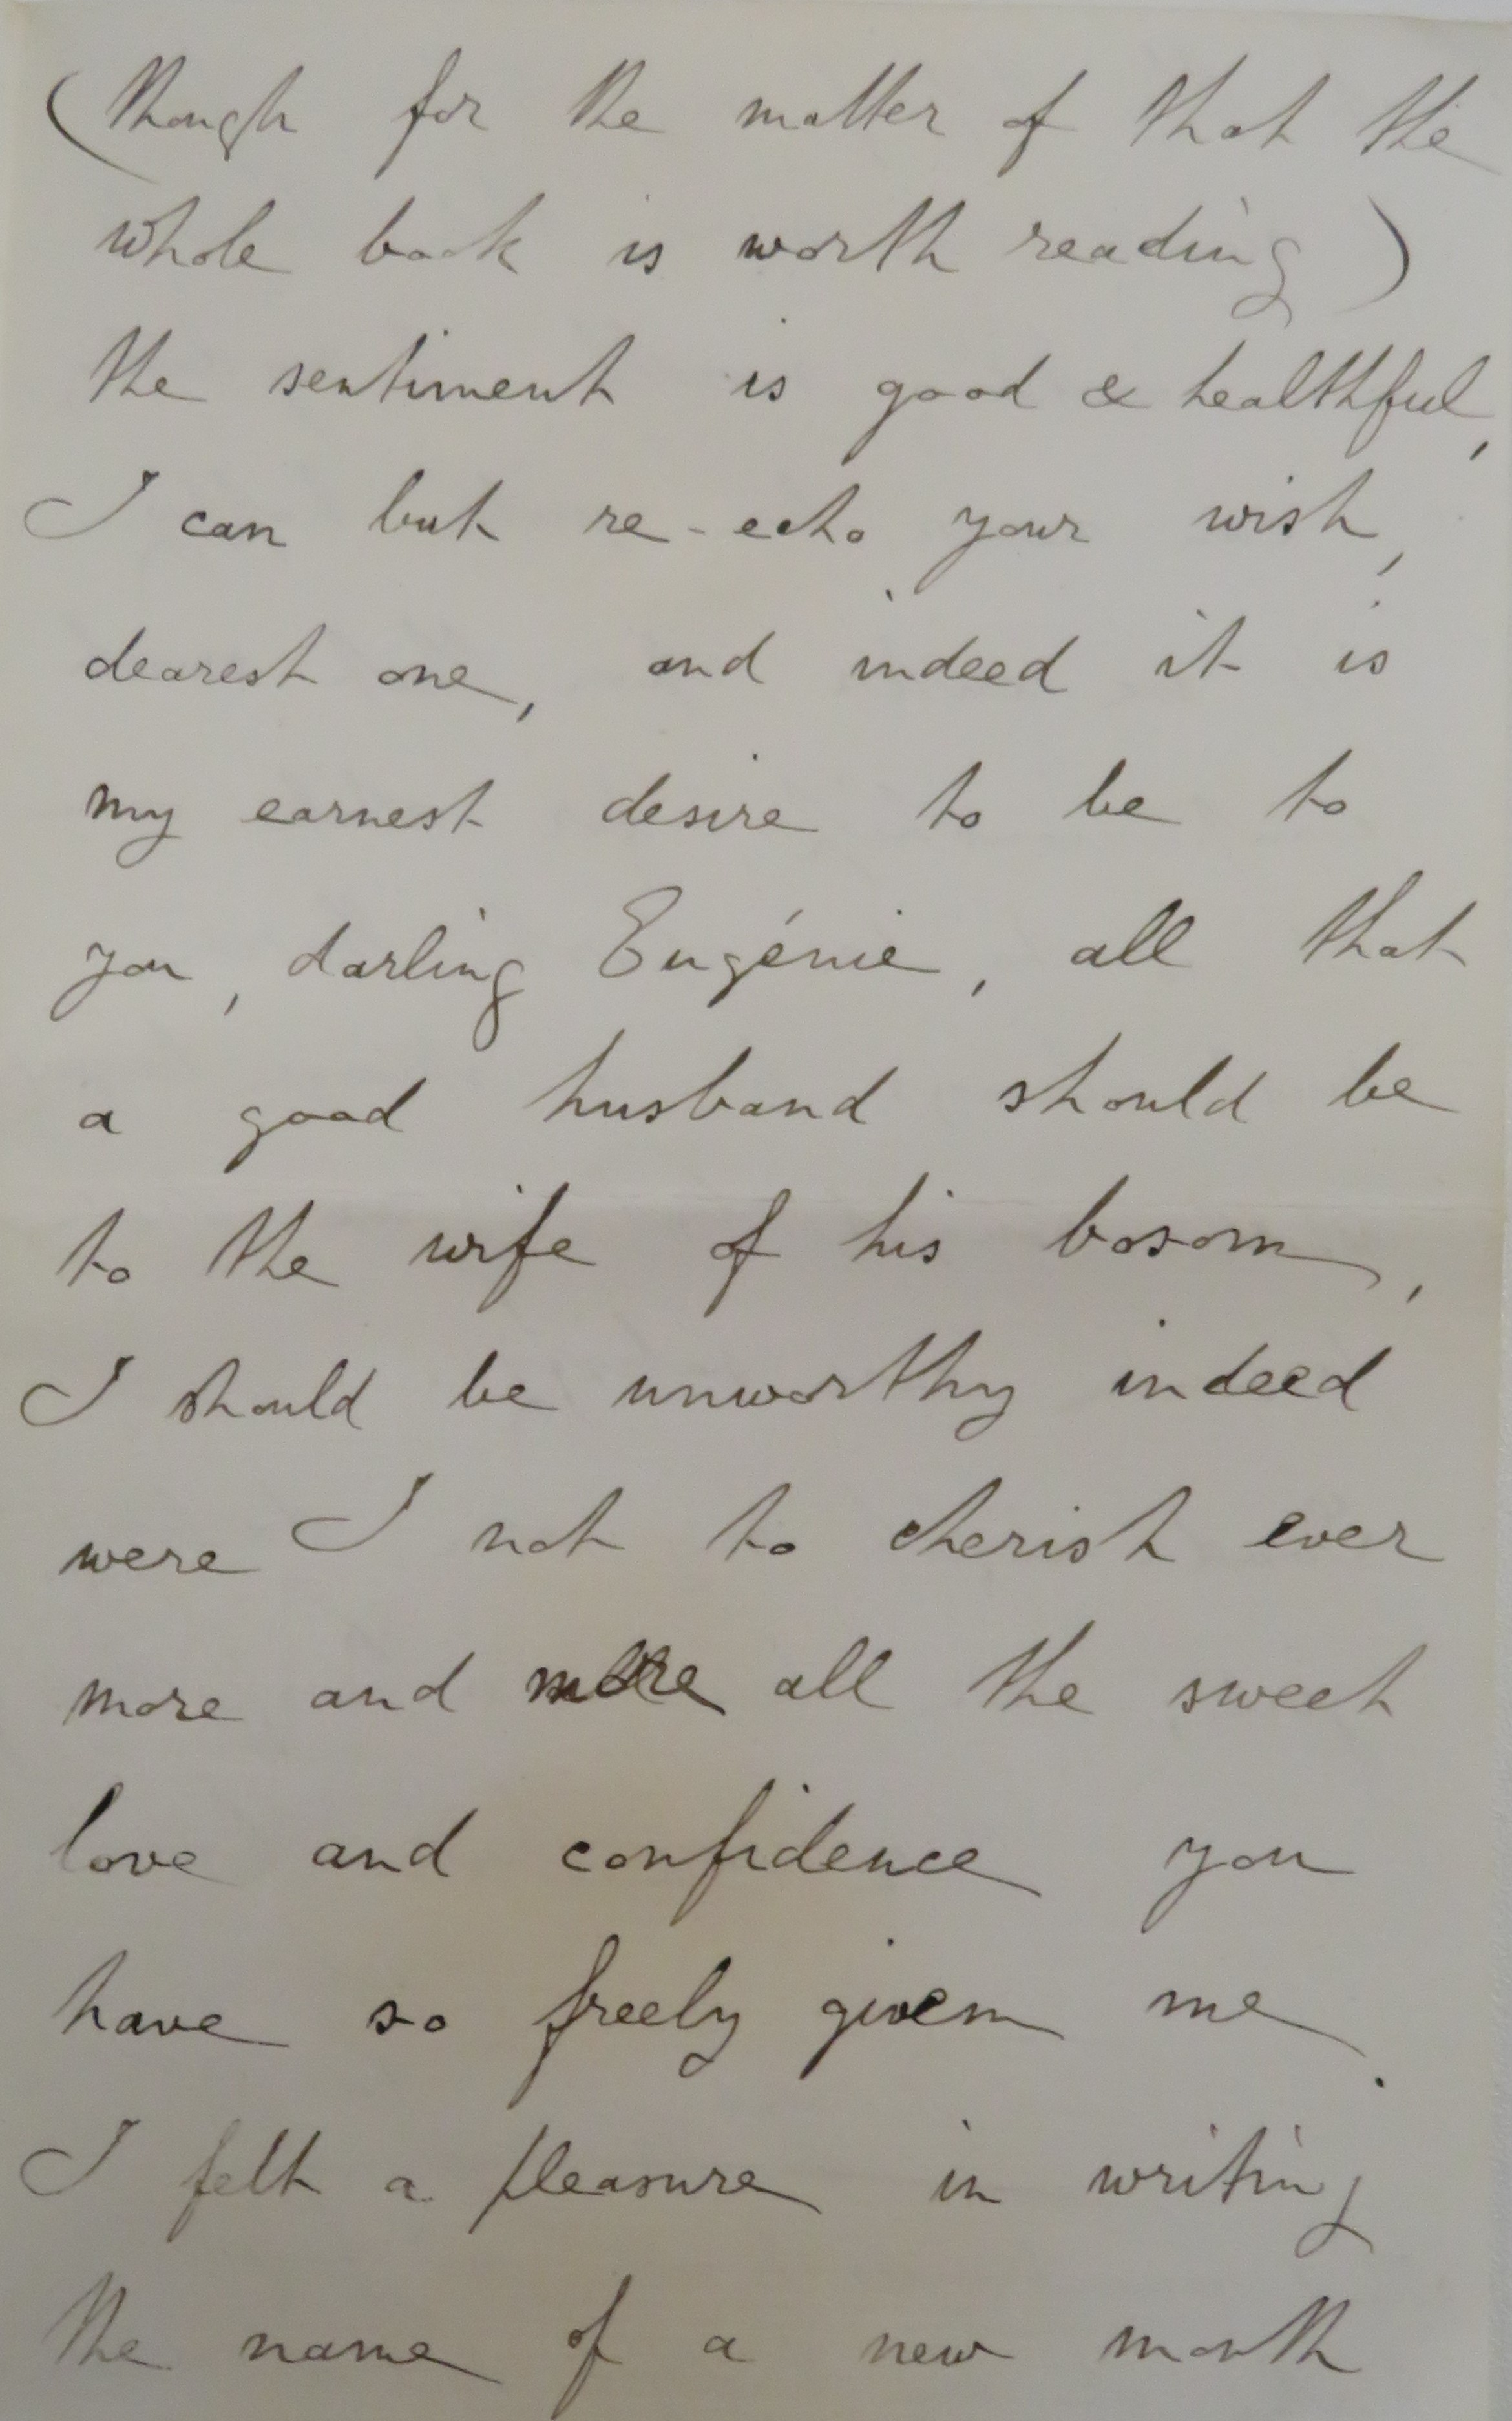 (though for the matter of that the
whole book is worth reading)
the sentiment is good & healthful,
I can but re-echo your wish,
dearest one, and indeed it is
my earnest desire to be to
you, darling Eugénie, all that
a good husband should be
to the wife of his bosom,
I should be unworthy indeed
were I not to cherish ever
more and more all the sweet
love and confidence you
have so freely given me.
I felt a pleasure in writing
the name of a new month